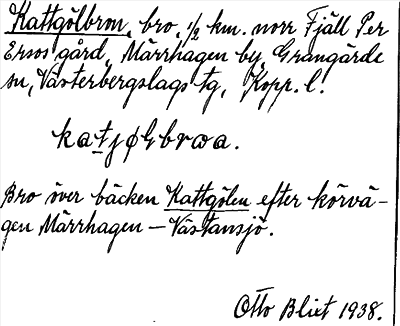 Kattgölbron, bro, 1/2 km. norr Fjäll Per
Ersos gård, Märrhagen by, Grangärde
sn, Västerbergslags tg, Kopp. l.
katjøLbrωa.
Bro över bäcken Kattgölen efter körvä-
gen Märrhagen – Västansjö.
Otto Blixt 1938.